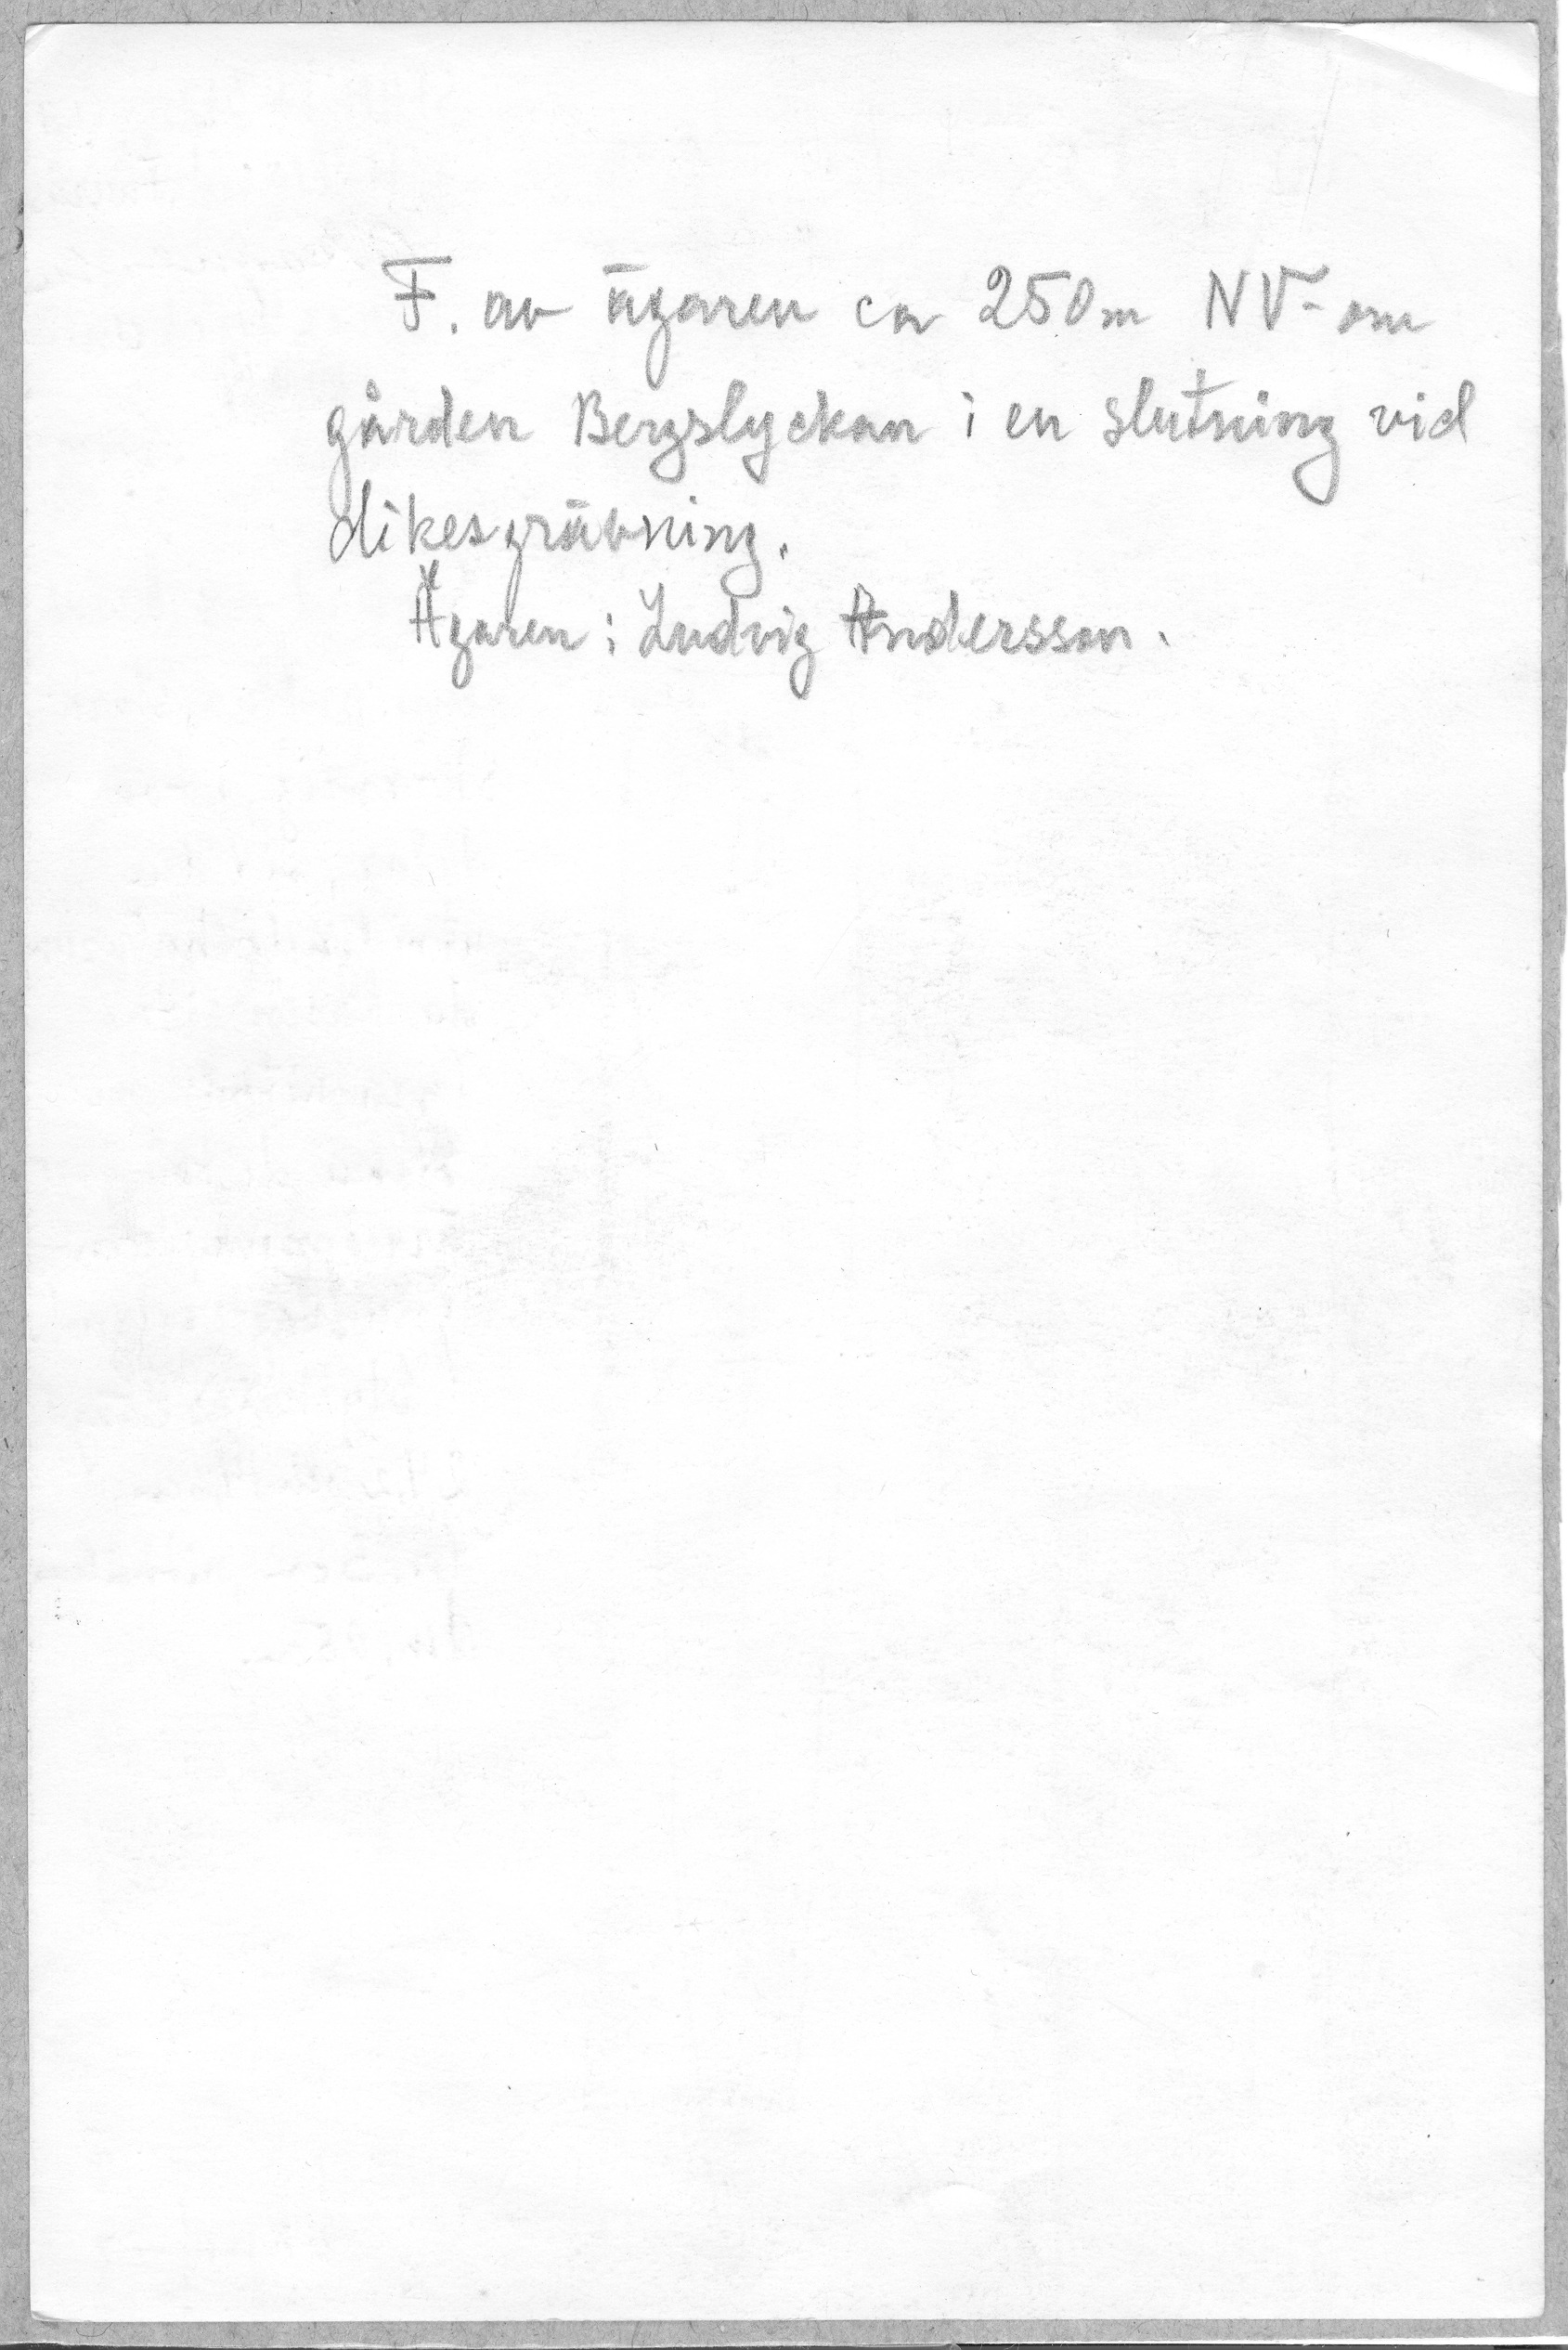 F. av ägaren ca 250m NV-om
gården Bergslyckan i en slutning vid
dikesgrävning.
Ägaren: Ludvig Andersson.